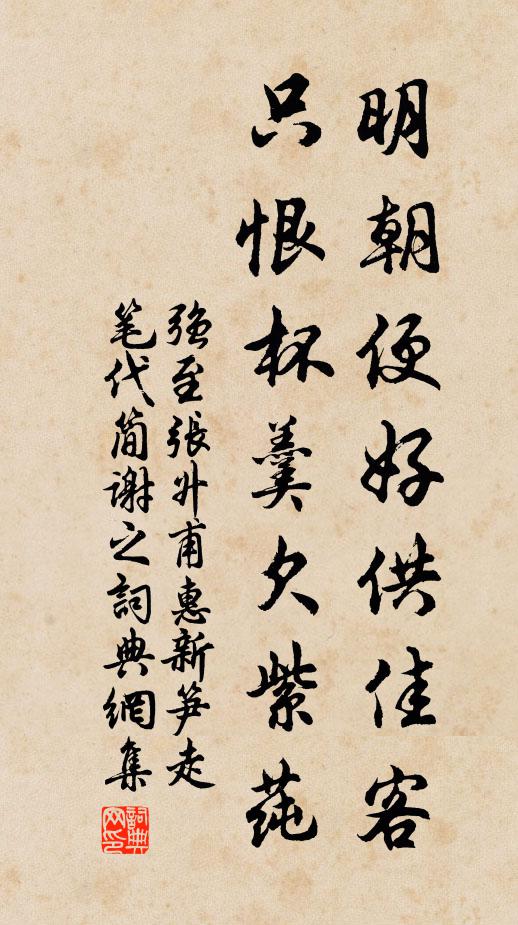 明朝便好供佳客
只恨杯羹欠紫莼
强至張升甫惠新笋走
笔代简謝之詞典網集
詞典网印